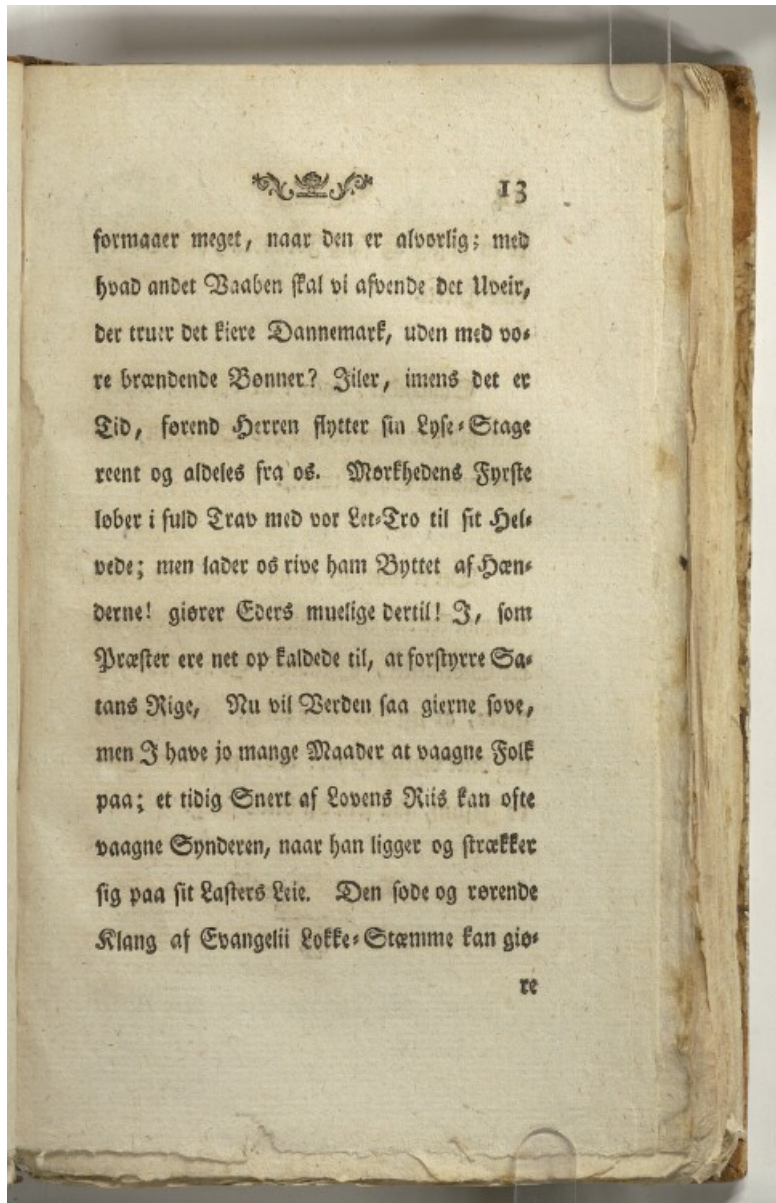 13
formaaer meget, naar den er alvorlig; med
hvad andet Vaaben skal vi afvende det Uveir,
der truer det kiere Dannemark, uden med vo-
re brændende Bønner? Jiler, imens det er
Tid, førend Herren flytter sin Lyse-Stage
reent og aldeles fra os. Mørkhedens Fyrste
løber i fuld Trav med vor Let-Tro til sit Hel-
vede; men lader os rive ham Byttet af Hæn-
derne! giører Eders muelige dertil! I, som
Præster ere net op kaldede til, at forstyrre Sa-
tans Rige, Nu vil Verden saa gierne sove,
men I have jo mange Maader at vaagne Folk
paa; et tidig Snert af Lovens Riis kan ofte
vaagne Synderen, naar han ligger og strækker
sig paa sit Lasters Leie. Den søde og rørende
Klang af Evangelii Lokke-Stæmme kan giø-
re